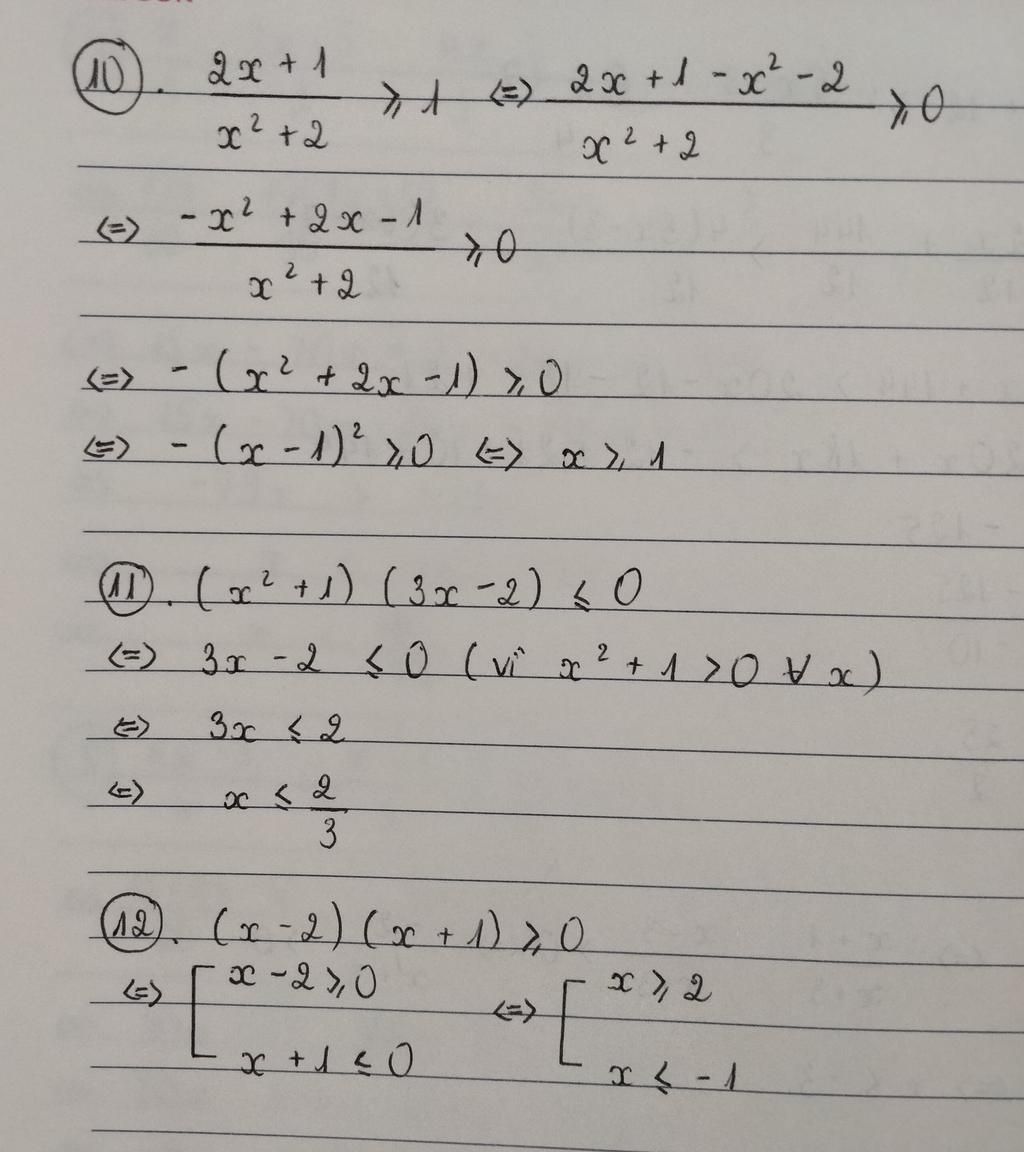 10. (2x + 1)/(x² + 2) ⩾ 1 <=> (2x + 1 - x² - 2)/(x² + 2) ⩾ 0
<=> (-x² + 2x - 1)/(x² + 2) ⩾ 0
<=> - (x² + 2x - 1) ⩾ 0
<=> - (x - 1)² ⩾ 0 <=> x ⩾ 1
11. (x² + 1) (3x - 2) ⩽ 0
<=> 3x - 2 ⩽ 0 (vì x² + 1 > 0 ∀ x)
<=> 3x ⩽ 2
<=> x ⩽ 2/3
12. (x - 2) (x + 1) ⩾ 0
<=> [ x - 2 ⩾ 0 <=> [ x ⩾ 2
x + 1 ⩽ 0 x ⩽ -1